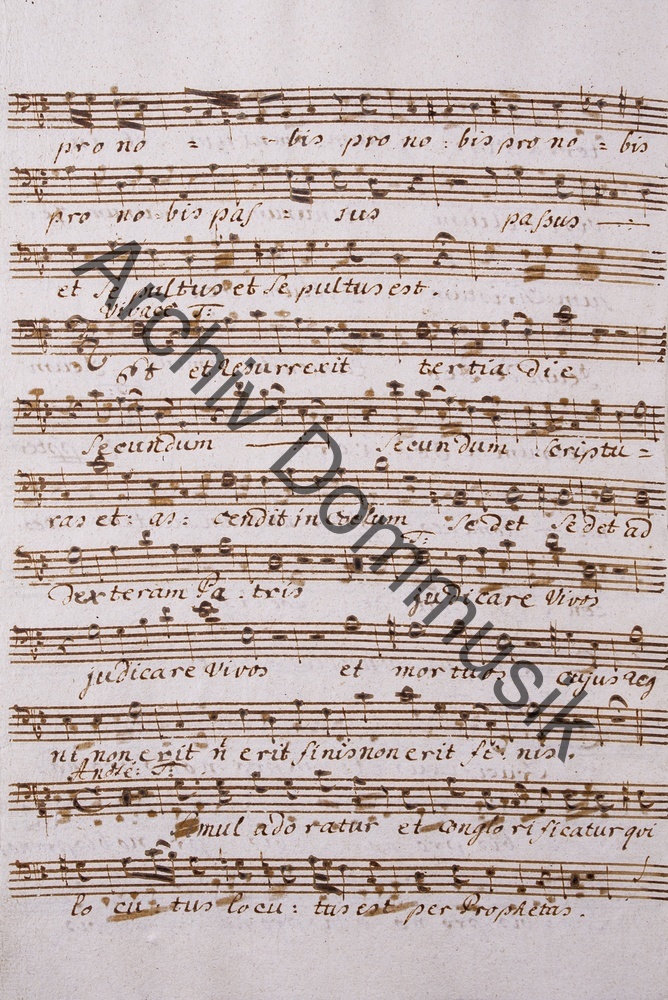 pro no = - bis pro no : bis pro no = bis
pro no : bis pas = sus passus
et se pultus et se pultus est.
Vivace T:
Et et Resurrexit tertia Die
secundum secundum scriptu =
ras et : as : cendit in Coelum sedet sedet ad
T:
Dexteram Pa . tris judicare Vivos
judicare Vivos et mortuos cujus reg
ni non erit n̄ erit finis non erit fi . nis .
And<sup>te</sup>: T:
simul adoratur et conglorificatur qui
lo cu : tus locu : tus est per Prophetas .
Archiv Dommusik